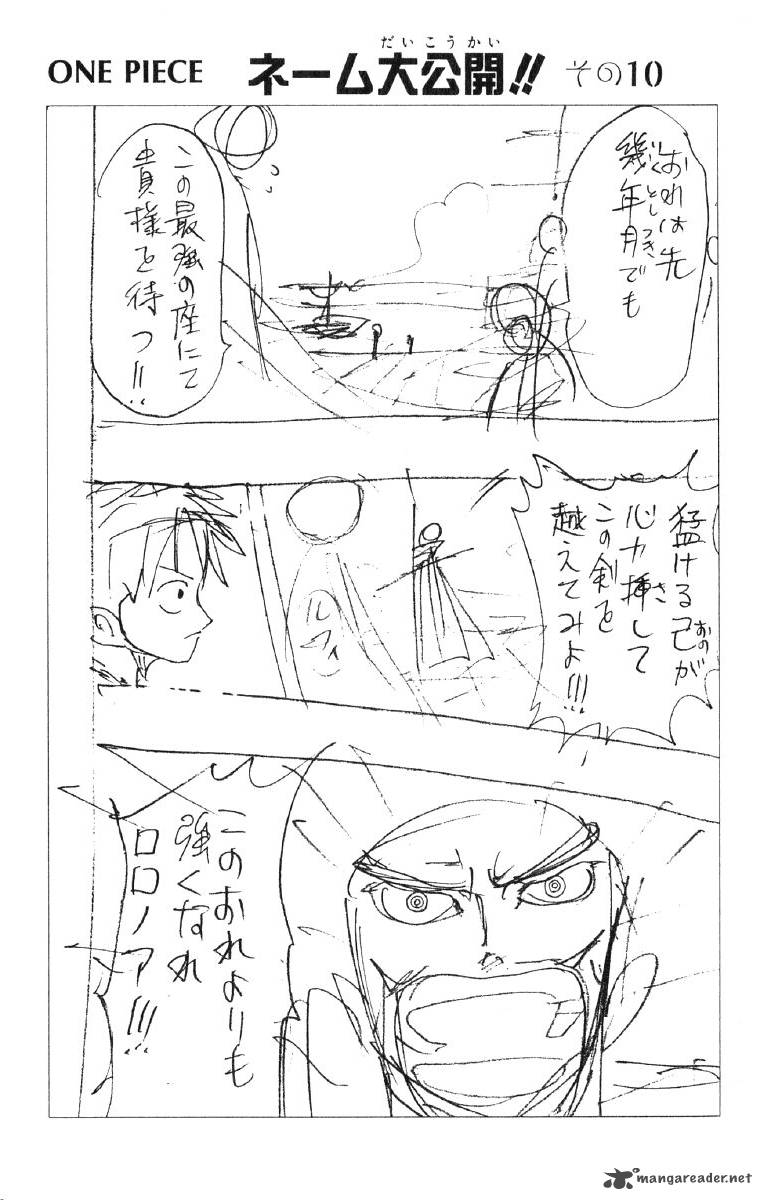 ONE PIECE ネーム大公開!! その10
だいこうかい
おれは先
幾年月でも
いくとしつき
この最強の座にて
貴様を待つ!!
猛ける己が
おの
心力挿して
さ
この剣を
越えてみよ!!!
このおれよりも
強くなれ
ロロノア!!!
mangareader.net